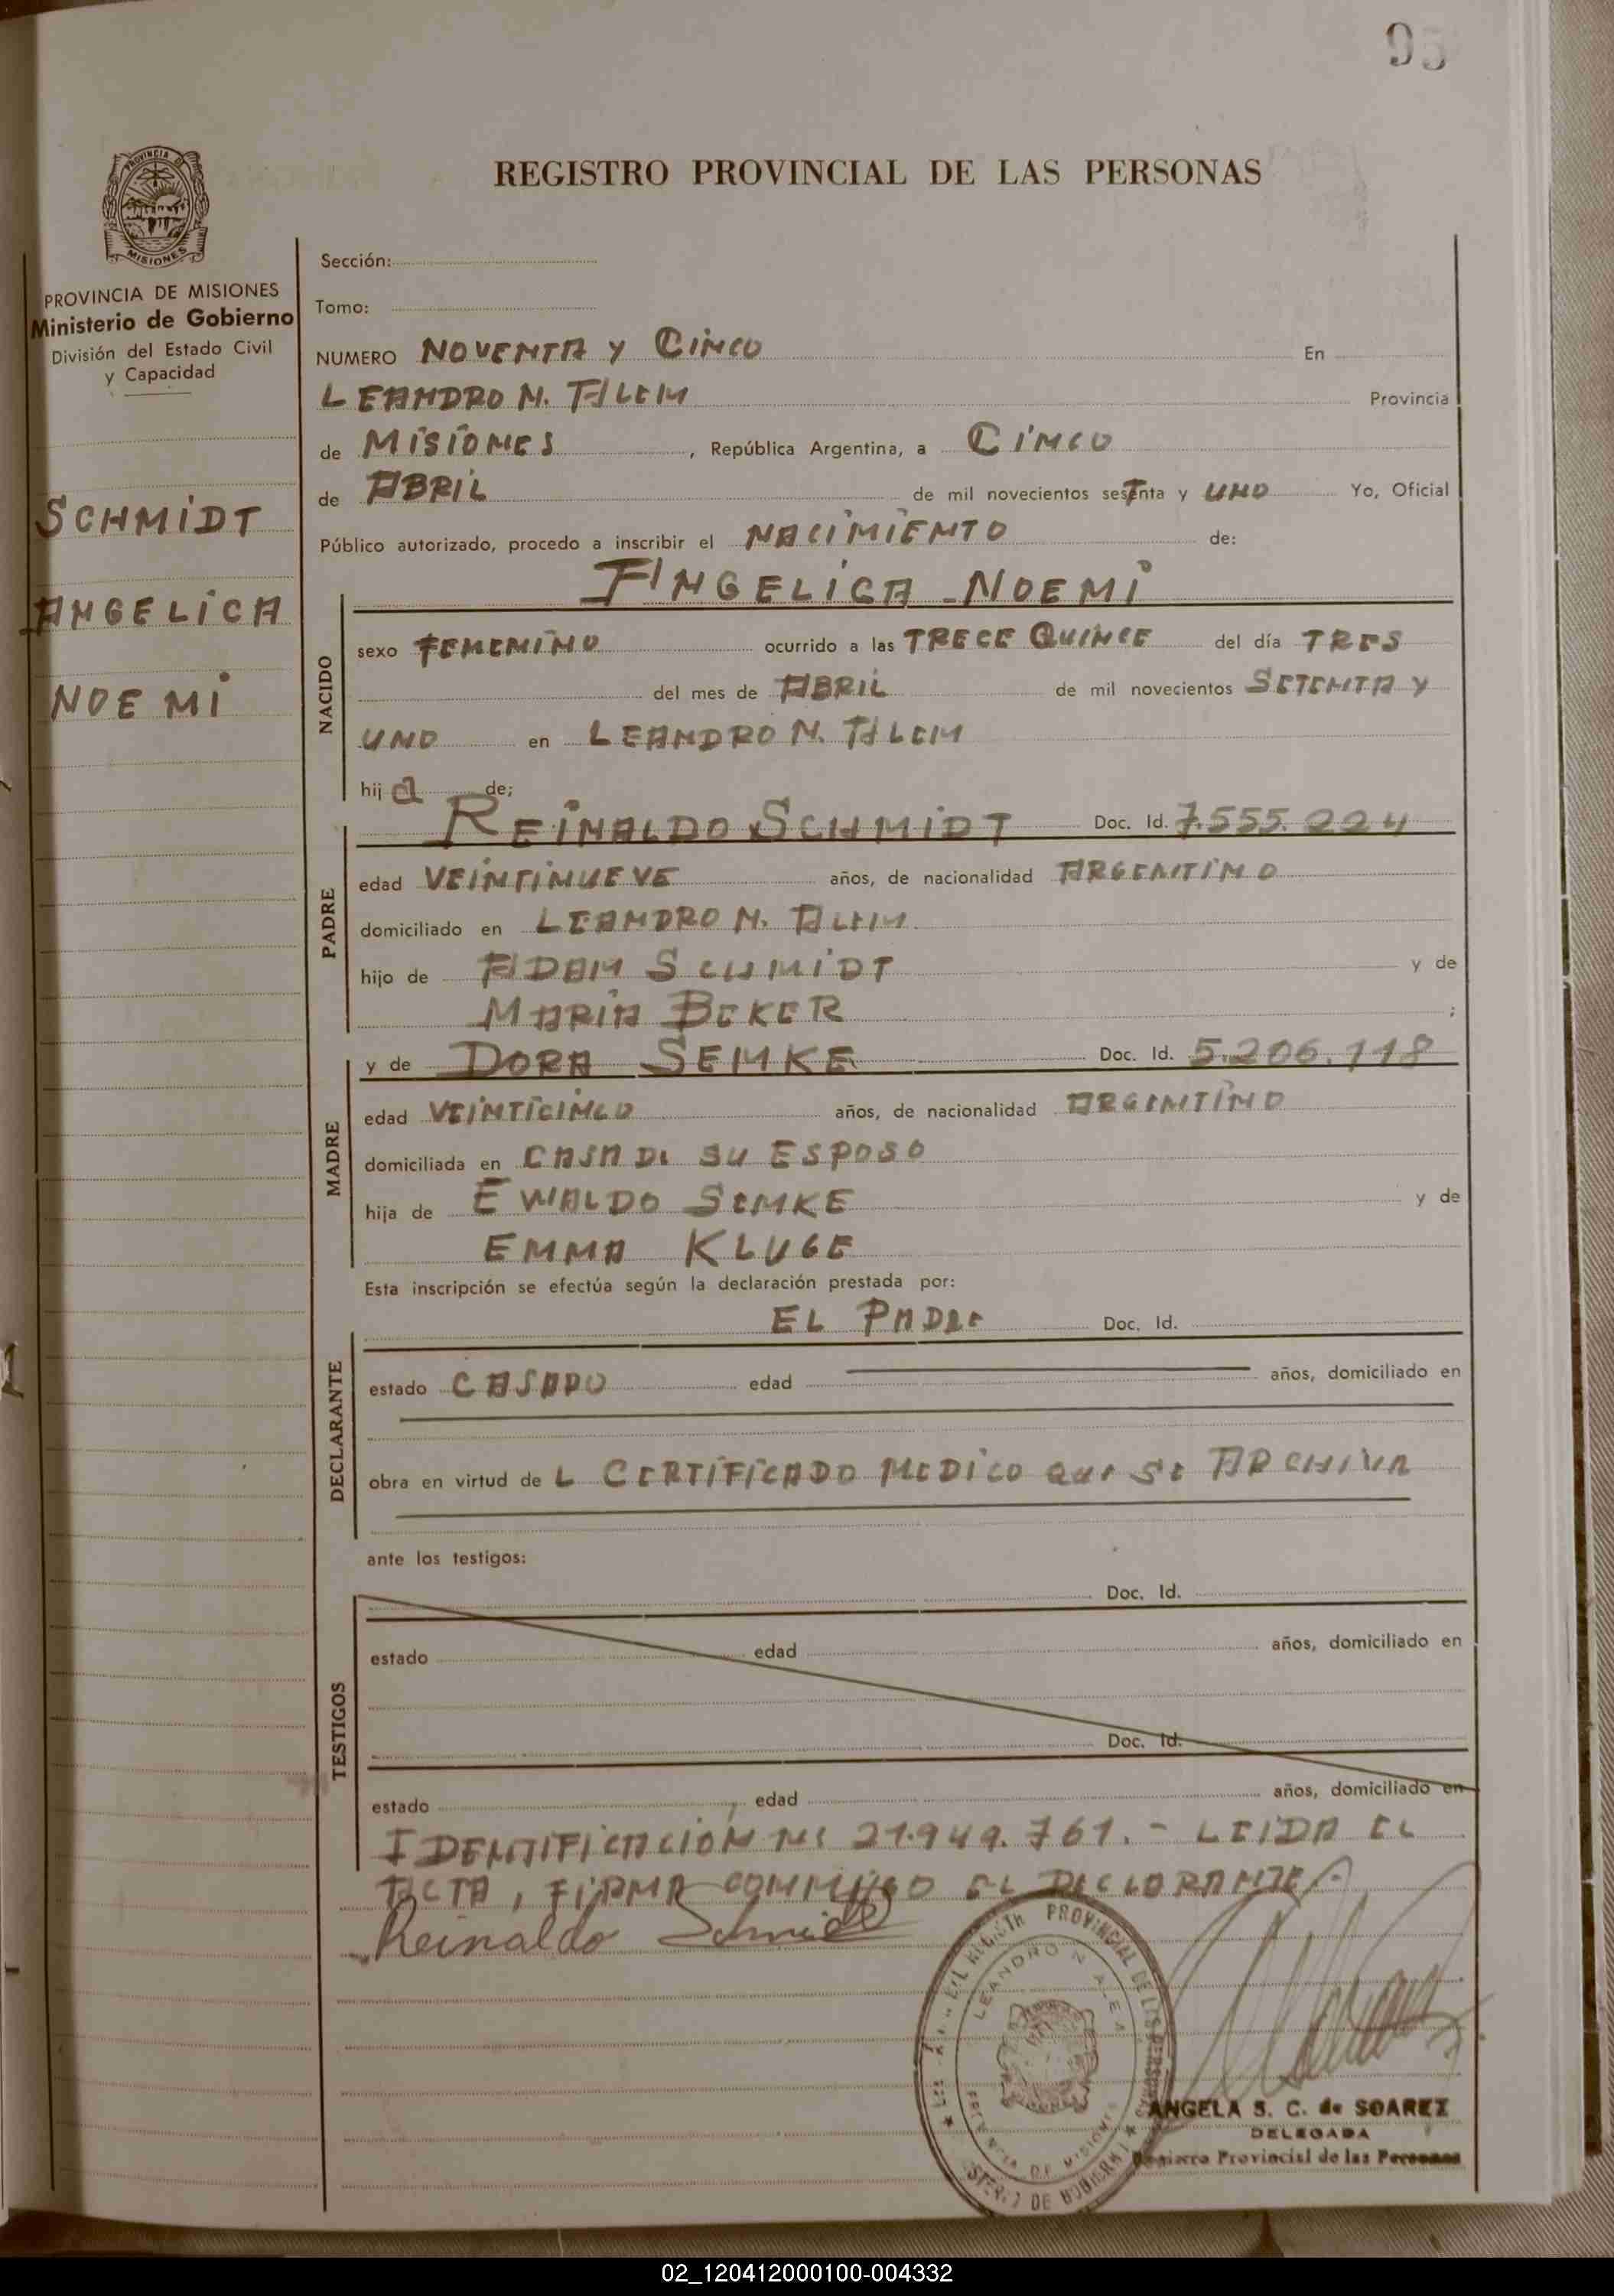 95
REGISTRO PROVINCIAL DE LAS PERSONAS
PROVINCIA DE MISIONES
PROVINCIA DE MISIONES
Ministerio de Gobierno
División del Estado Civil
y Capacidad
SCHMIDT
ANGELICA
NOEMI
Sección:
Tomo:
NUMERO NOVENTA Y CINCO En
LEANDRO N. ALEM Provincia
de MISIONES, República Argentina, a CINCO
de ABRIL de mil novecientos sesTnta y UNO Yo, Oficial
Público autorizado, procedo a inscribir el NACIMIENTO de:
ANGELICA NOEMI
NACIDO
sexo FEMENINO ocurrido a las TRECE QUINCE del día TRES
del mes de ABRIL de mil novecientos SETENTA Y
UNO en LEANDRO N. ALEM
hija de;
PADRE
REINALDO SCHMIDT Doc. Id. 7.555.224
edad VEINTINUEVE años, de nacionalidad ARGENTINO
domiciliado en LEANDRO N. ALEM
hijo de ADAM SCHMIDT y de
MARIA BEKER ;
MADRE
y de DORA SEMKE Doc. Id. 5.206.118
edad VEINTICINCO años, de nacionalidad ARGENTINO
domiciliada en CASA DE SU ESPOSO
hija de EWALDO SEMKE y de
EMMA KLUGE
Esta inscripción se efectúa según la declaración prestada por:
DECLARANTE
EL PADRE Doc. Id.
estado CASADO edad años, domiciliado en
obra en virtud deL CERTIFICADO MEDICO QUE SE ARCHIVA
ante los testigos:
TESTIGOS
Doc. Id.
estado edad años, domiciliado en
Doc. Id.
estado edad años, domiciliado en
IDENTIFICACION Nº 21.949.761.- LEIDA EL
ACTA, FIRMA CONMIGO EL DECLARANTE
Reinaldo Schmidt
PROVINCIAL DE LAS PERSONAS
LEANDRO N ALEM
PROVINCIA DE MISIONES
DE GOBIERNO
ANGELA S. C. de SOAREZ
DELEGADA
Registro Provincial de las Personas
02_120412000100-004332